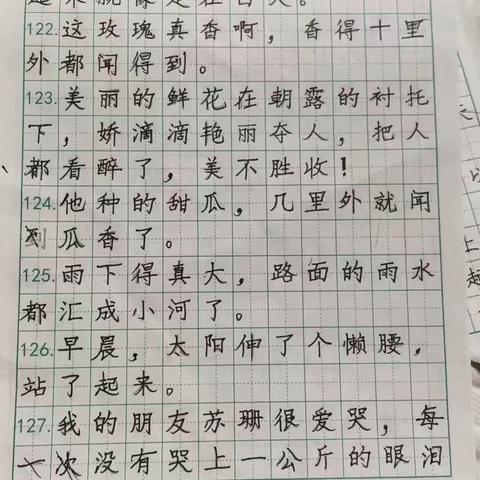 122.这玫瑰真香啊，香得十里
外都闻得到。
123.美丽的鲜花在朝露的衬托
下，娇滴滴艳丽夺人，把人
都看醉了，美不胜收！
124.他种的甜瓜，几里外就闻
到瓜香了。
125.雨下得真大，路面的雨水
都汇成小河了。
126.早晨，太阳伸了个懒腰，
站了起来。
127.我的朋友苏珊很爱哭，每
一次没有哭上一公斤的眼泪